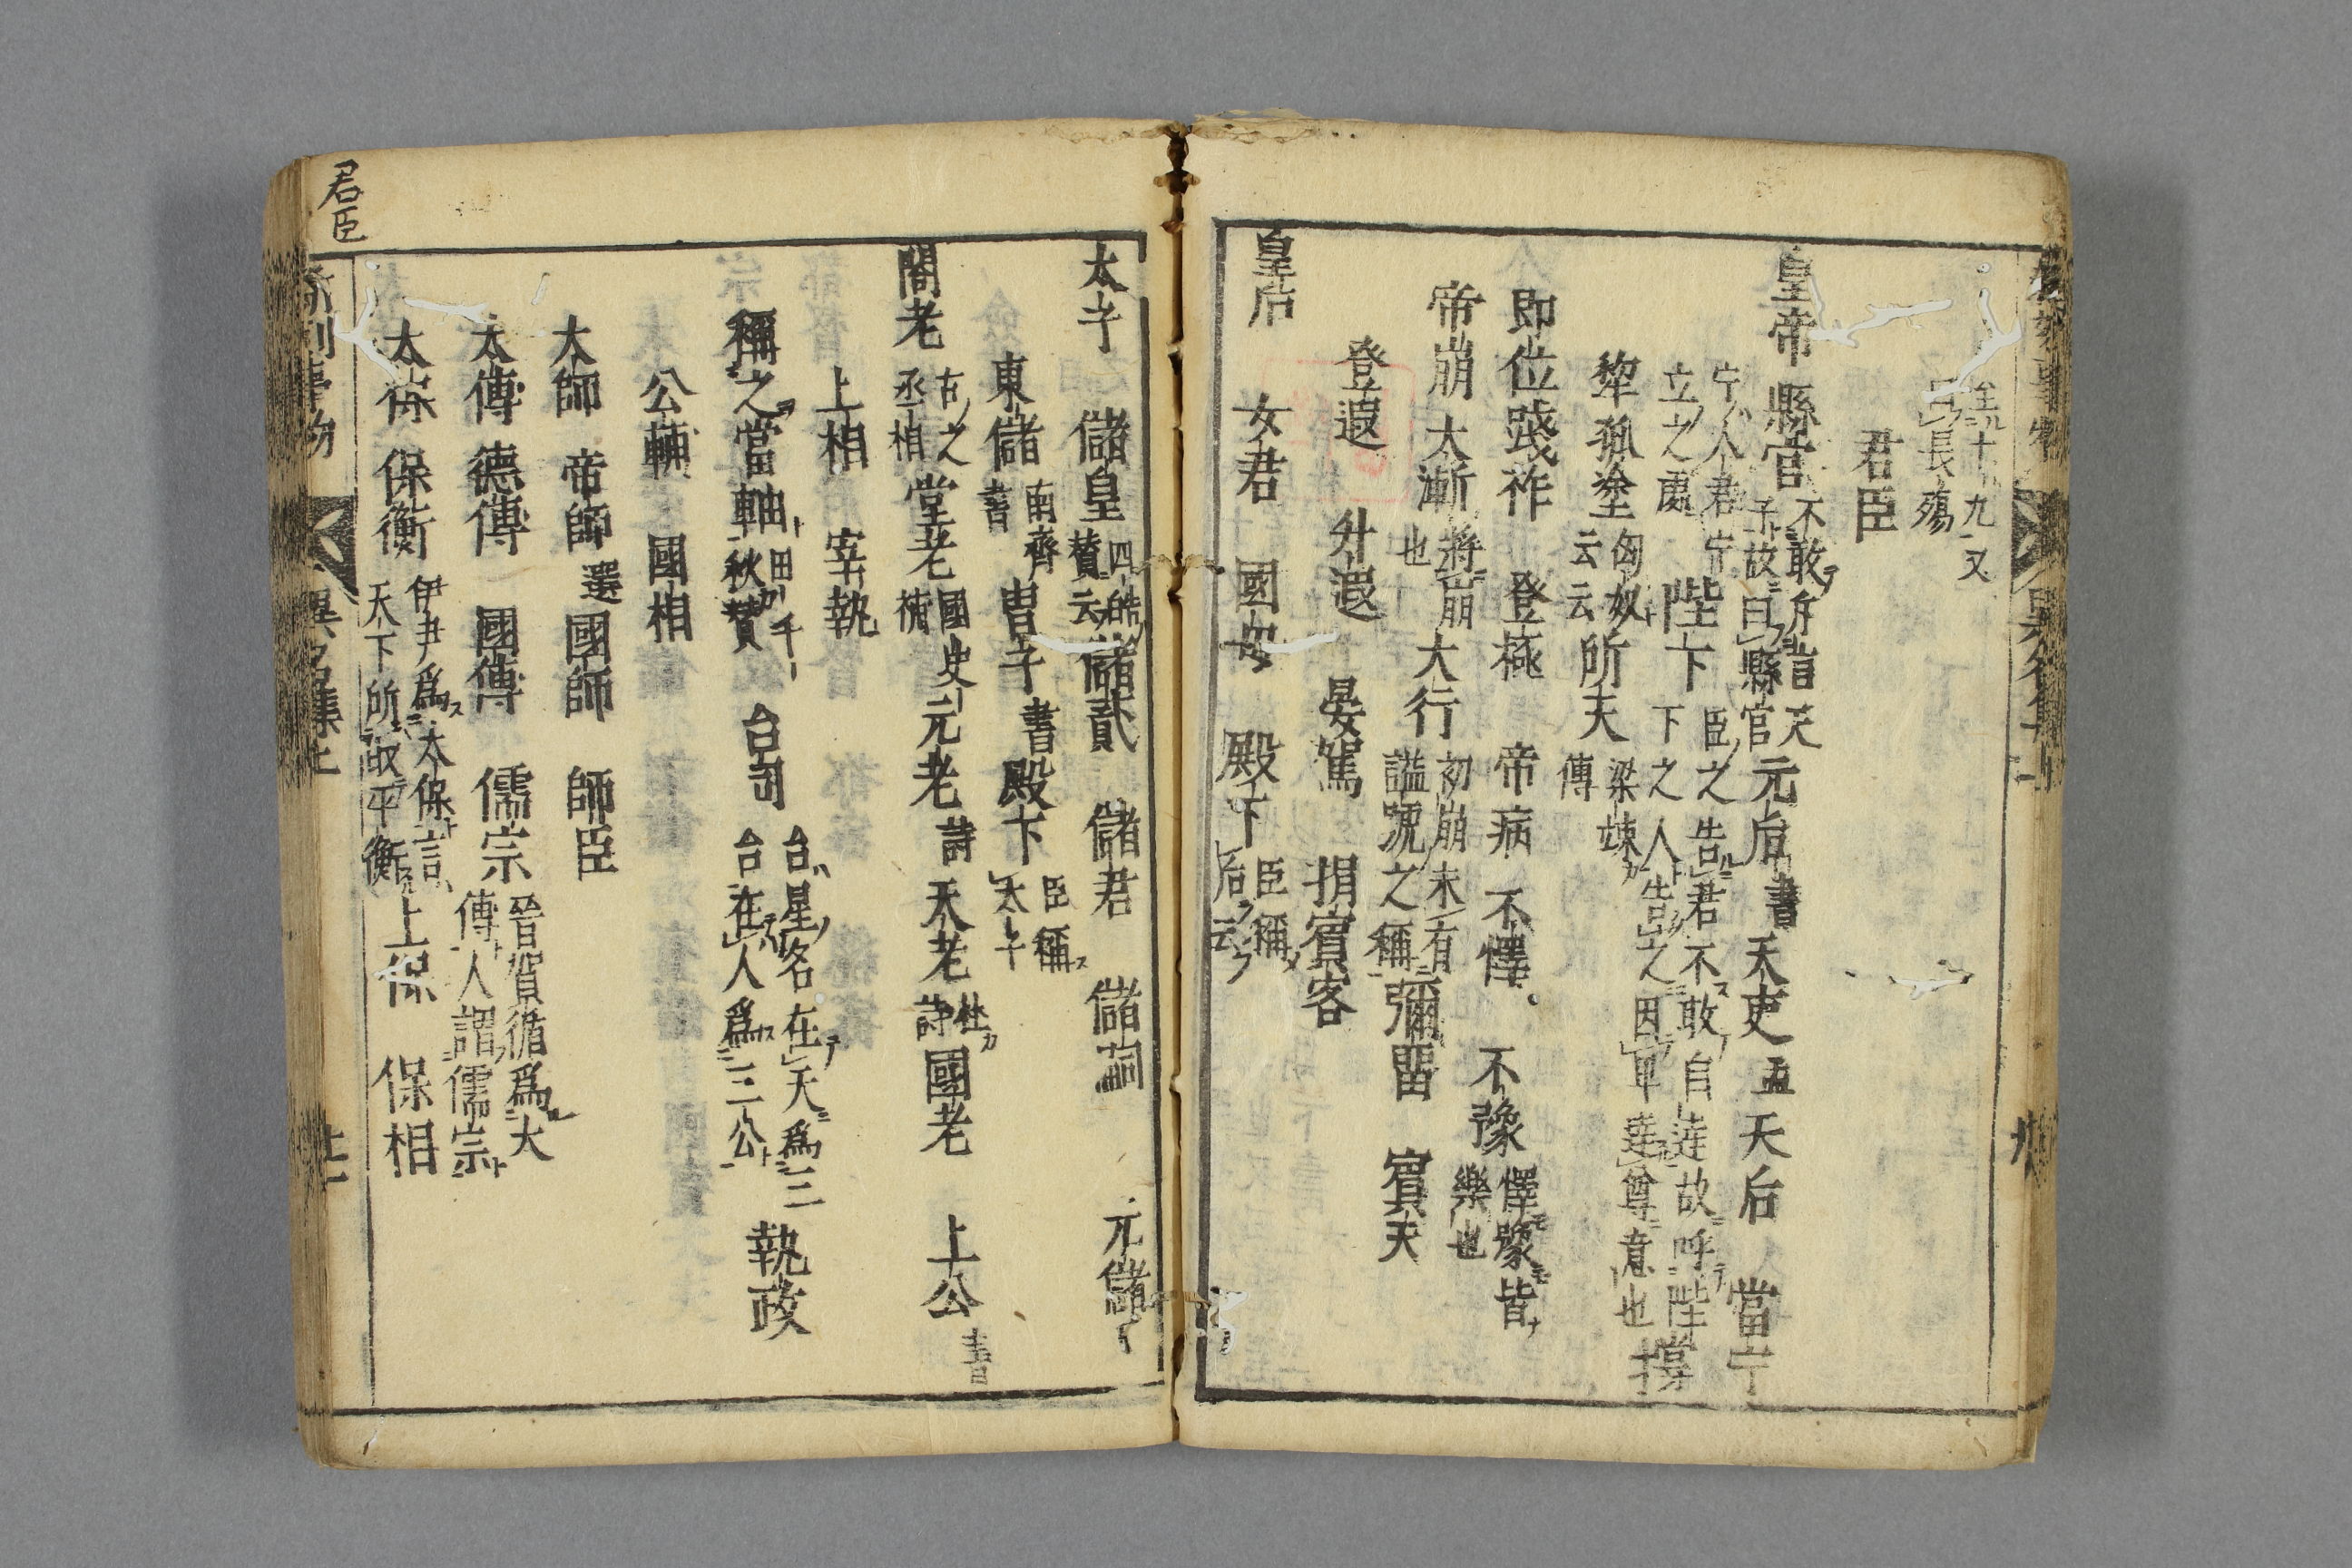 至十九又
曰長殤
君臣
皇帝 縣官 不敢斥言天
子故曰縣官 元后 書 天吏 孟 天后 當宁
宁人君宁
立之處 陛下 臣之告君不敢自達故呼陛
下之人告之因卑達尊意也
犂孤塗 匈奴
云云 所天 梁竦
傳
即位 踐祚 登極 帝病 不懌 不豫 懌豫皆
樂也
帝崩 大漸 將崩
也 大行 初崩未有
謚號之稱 彌留 賓天
登遐 升遐 晏駕 捐賓客
皇后 女君 國母 殿下 臣稱
后云
太子 儲皇 四皓
贊云 儲貳 儲君 儲嗣 元儲
東儲 南齊
書 胄子 書 殿下 臣稱
太子
閣老 古之
丞相 堂老 國史
補 元老 詩 天老 杜
詩 國老 上公 書
上相 宰執
稱之當軸 田千
秋贊 台司 台星名在天爲三
台在人爲三公 執政
公輔 國相
大師 帝師 選 國師 師臣
太傅 德傅 國傅 儒宗 晉賀循爲太
傅人謂儒宗
太保 保衡 伊尹爲太保言
天下所取平衡 上保 保相
君臣
異名集上